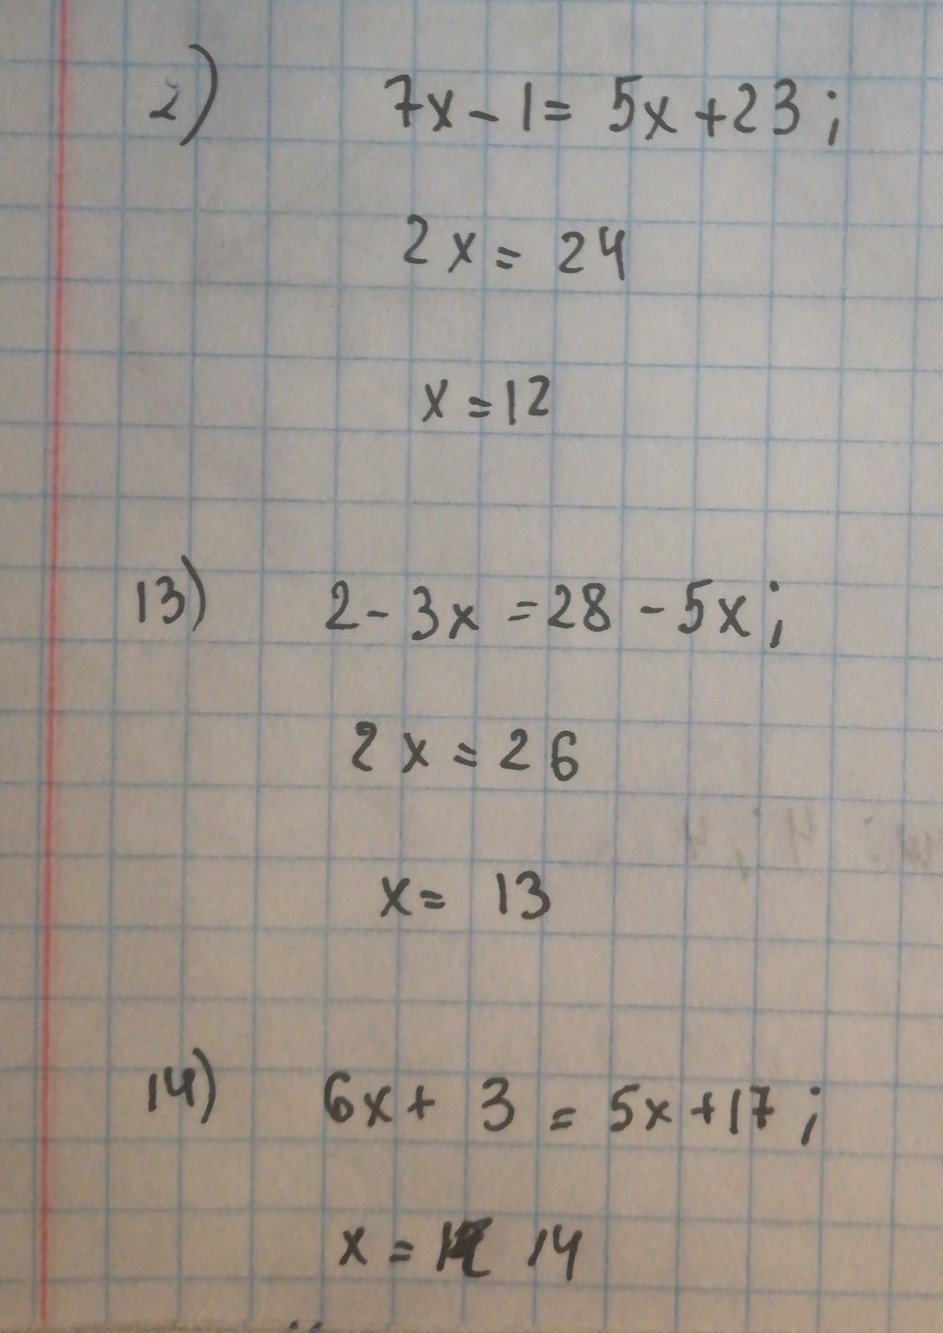 2) 7x - 1 = 5x + 23;
2x = 24
x = 12
13) 2 - 3x = 28 - 5x;
2x = 26
x = 13
14) 6x + 3 = 5x + 17;
x = 14